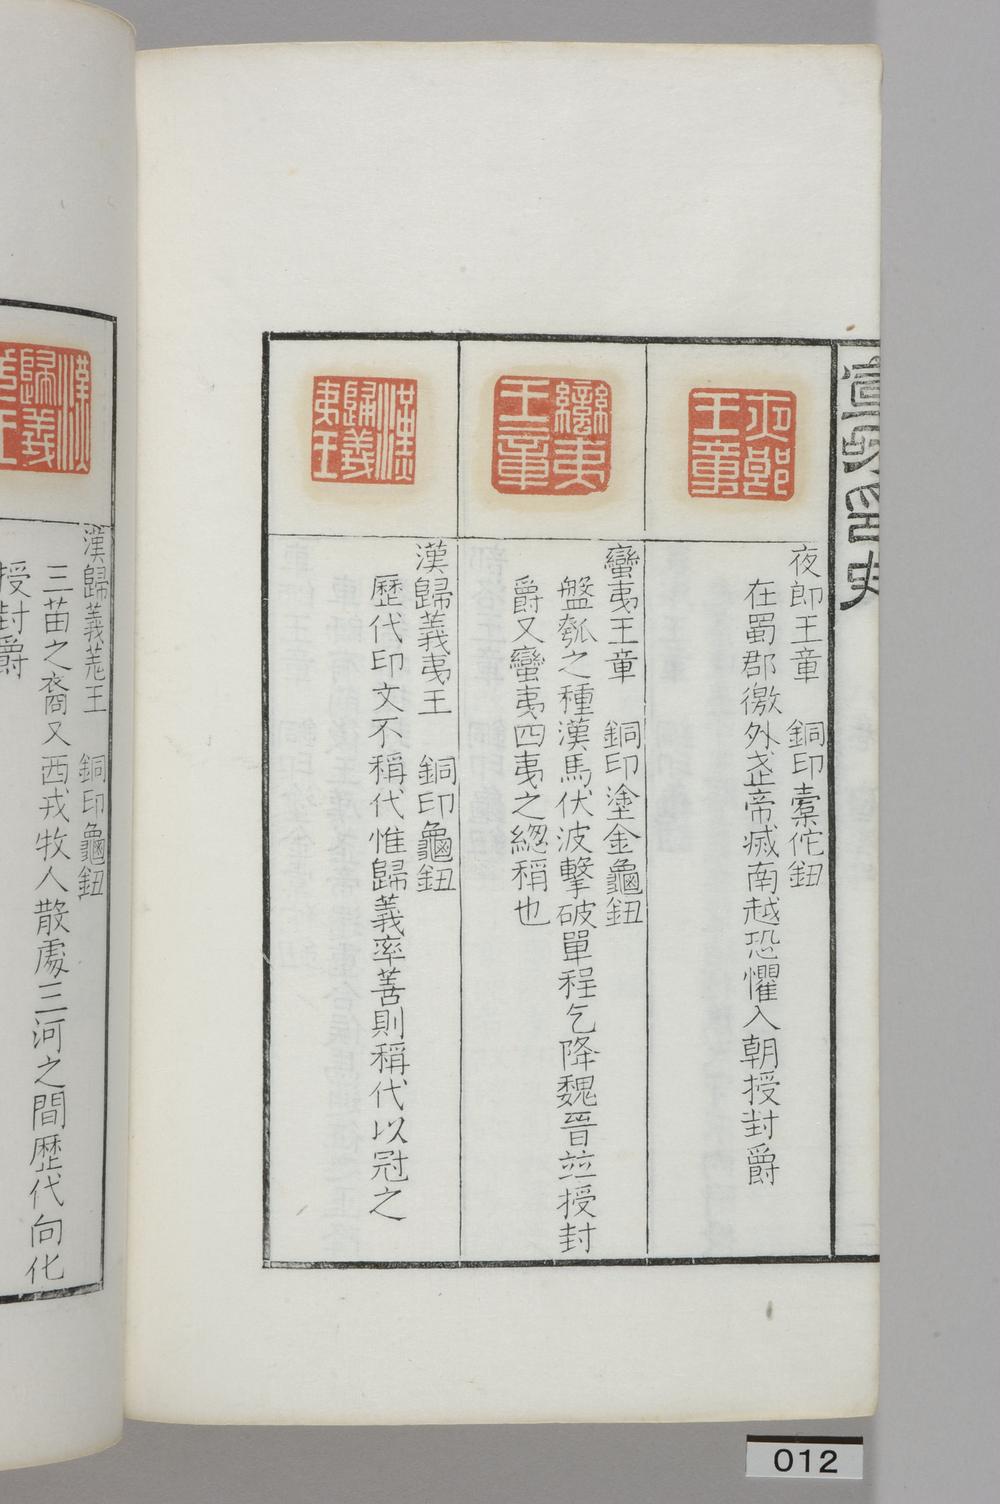 宣和印史
夜郎王章
夜郎王章　銅印橐佗鈕
在蜀郡徼外武帝滅南越恐懼入朝授封爵
蠻夷王章
蠻夷王章　銅印塗金龜鈕
盤瓠之種漢馬伏波擊破單程乞降魏晉竝授封
爵又蠻夷四夷之緫稱也
漢歸義夷王
漢歸義夷王　銅印龜鈕
歷代印文不稱代惟歸義率善則稱代以冠之
漢歸義羌王
漢歸義羌王　銅印龜鈕
三苗之裔又西戎牧人散處三河之間歷代向化
授封爵
012